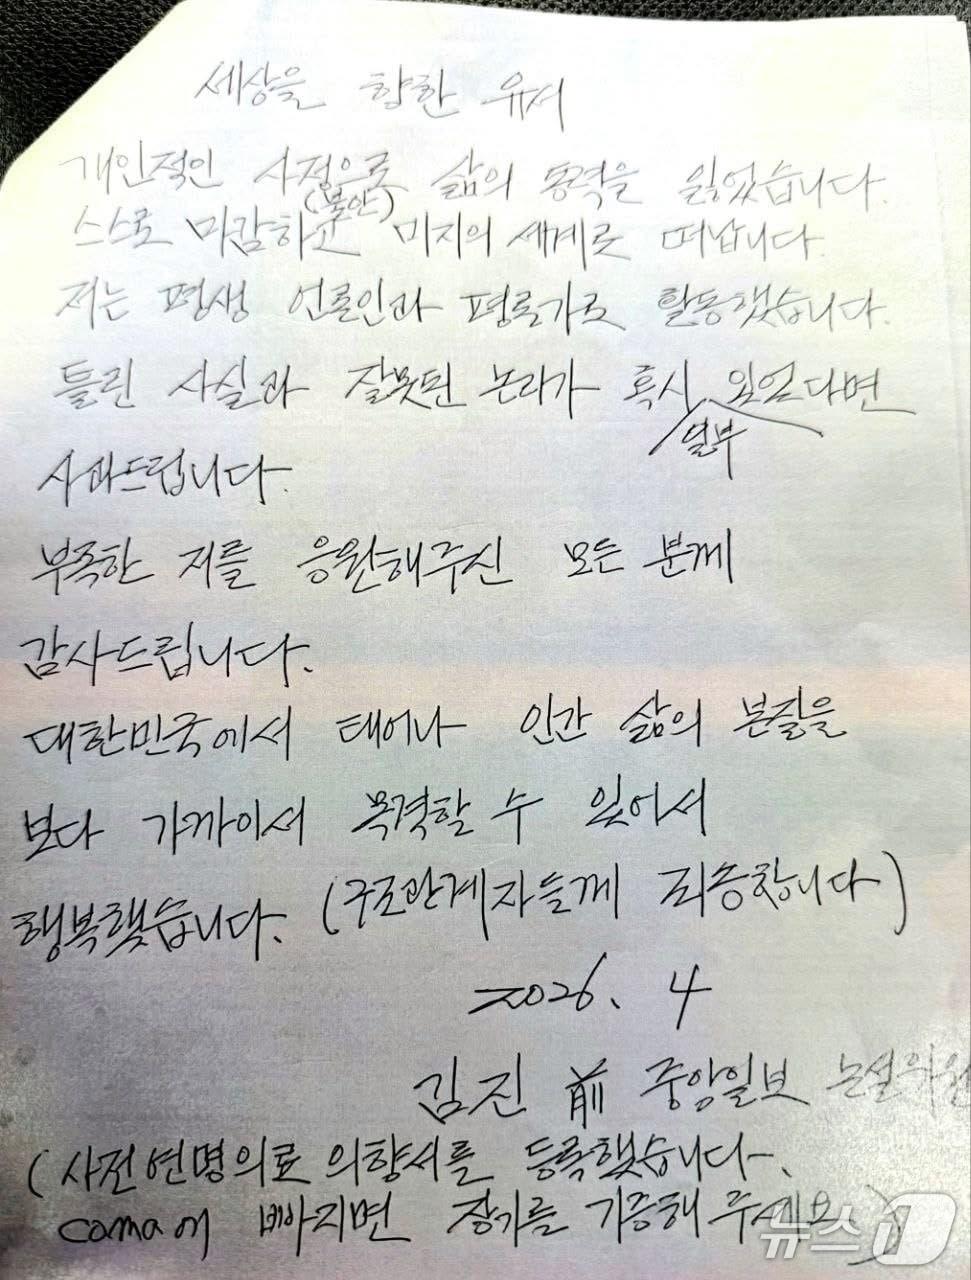 세상을 향한 유서
개인적인 사정으로 삶의 동력을 잃었습니다.
(불안)
스스로 마감하고 미지의 세계로 떠납니다.
저는 평생 언론인과 평론가로 활동했습니다.
틀린 사실과 잘못된 논리가 혹시 있었다면
일부
사과드립니다.
부족한 저를 응원해주신 모든 분께
감사드립니다.
대한민국에서 태어나 인간 삶의 본질을
보다 가까이서 목격할 수 있어서
행복했습니다. (구조관계자들께 죄송합니다)
2026. 4
김진 前 중앙일보 논설위원
(사전연명의료 의향서를 등록했습니다.
coma에 빠지면 장기를 기증해 주세요)
뉴스1